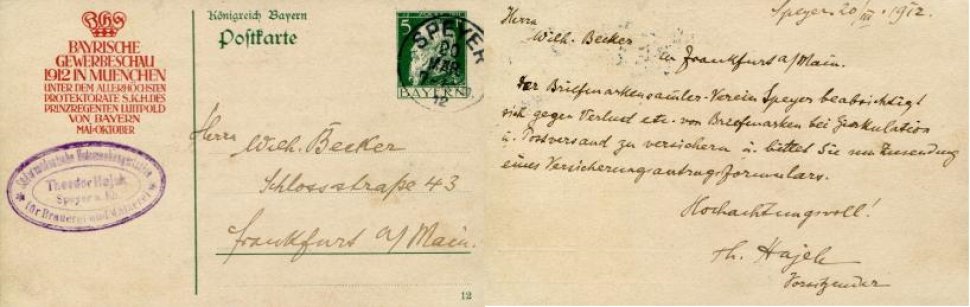 BAYRISCHE
GEWERBESCHAU
1912 IN MUENCHEN
UNTER DEM ALLERHÖCHSTEN
PROTEKTORATE S.K.H.DES
PRINZREGENTEN LUITPOLD
VON BAYERN
MAI-OKTOBER
Theodor Hajek
Speyer a. Rh.
für Brauerei und Mälzerei
Königreich Bayern
Postkarte
5
BAYERN
SPEYER
20
MAR
12
Herrn
Wilh. Becker
Schlossstraße 43
Frankfurt a/Main.
12
Speyer 20/III. 1912.
Herrn
Wilh. Becker
in Frankfurt a/Main.
Der Briefmarkensamler-Verein Speyer beabsichtigt
sich gegen Verlust etc. von Briefmarken bei Zirkulation
u. Postversand zu versichern u. bittet Sie um Zusendung
eines Versicherungsantrag-Formulars.
Hochachtungsvoll!
Th. Hajek
Vorsitzender